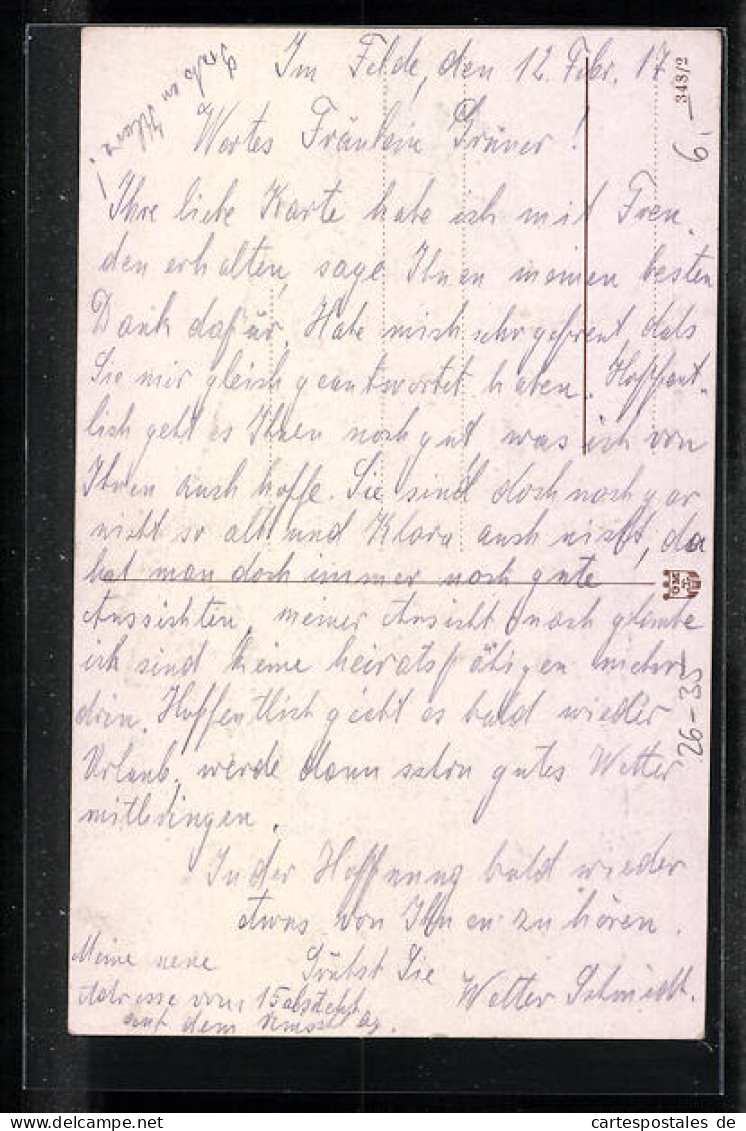 Im Felde, den 12. Febr. 17
348/2
Gruß an Klara!
6,-
Wertes Fräulein Grüner!
Ihre liebe Karte habe ich mit Freu-
den erhalten, sage Ihnen meinen besten
Dank dafür. Habe mich sehr gefreut, daß
Sie mir gleich geantwortet haben. Hoffent-
lich geht es Ihnen noch gut, was ich von
Ihnen auch hoffe. Sie sind doch noch gar
nicht so alt und Klara auch nicht, da
hat man doch immer noch gute
Aussichten, meiner Ansicht nach glaube
ich sind keine heiratsfähigen mehr
drin. Hoffentlich giebt es bald wieder
26-35
Urlaub, werde dann schön gutes Wetter
mitbringen.
In der Hoffnung bald wieder
etwas von Ihnen zu hören.
Grüßt Sie
Walter Schmidt.
Meine neue
Adresse vom 15 ab steht
auf dem
cartespostales de